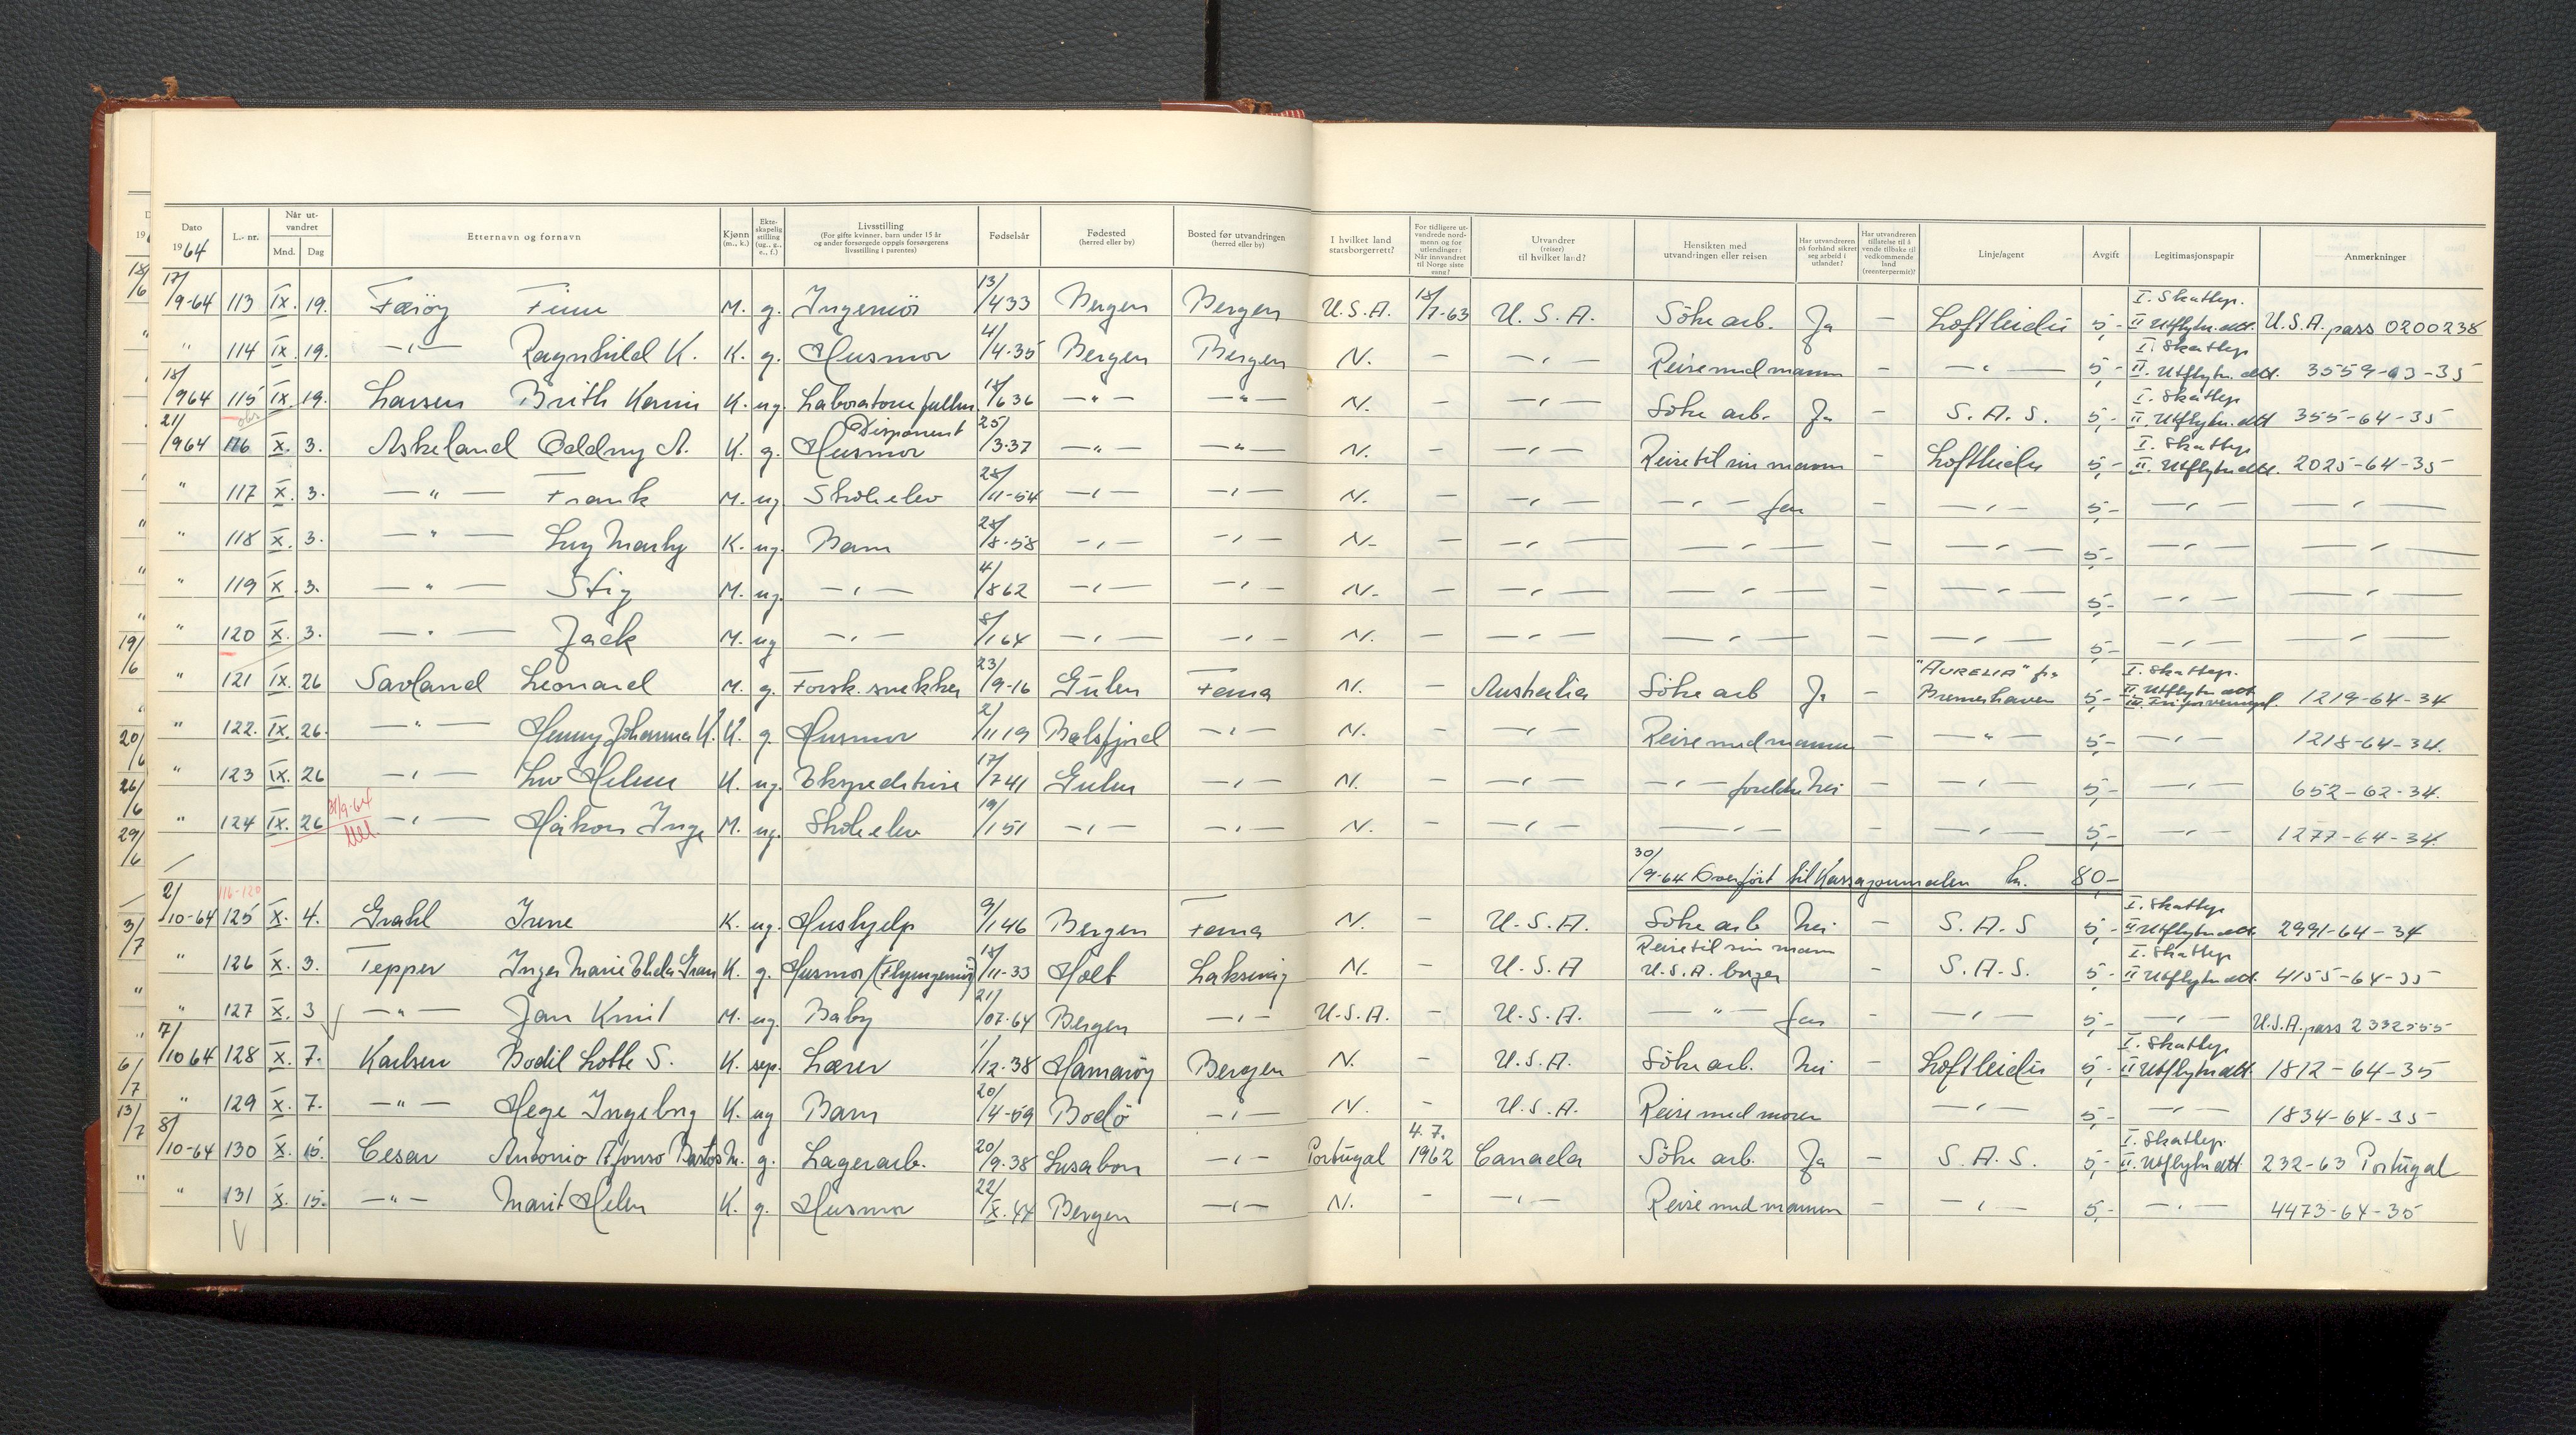 Dato 1964 | L.-nr. | Når utvandret Mnd. Dag | Etternavn og fornavn | Kjønn (m., k.) | Ekteskapelig stilling (ug., g., e., f.) | Livsstilling (For gifte kvinner, barn under 15 år og ander forsørgede oppgis forsørgerens livsstilling i parentes) | Fødselsår | Fødested (herred eller by) | Bosted før utvandringen (herred eller by) | I hvilket land statsborgerrett? | For tidligere utvandrede nordmenn og for utlendinger: Når innvandret til Norge siste gang? | Utvandrer (reiser) til hvilket land? | Hensikten med utvandringen eller reisen | Har utvandreren på forhånd sikret seg arbeid i utlandet? | Har utvandreren tillatelse til å vende tilbake til vedkommende land (reenterpermit)? | Linje/agent | Avgift | Legitimasjonspapir | Anmerkninger
17/9-64 113 IX. 19. Færöy Finn M. g. Ingeniör 13/433 Bergen Bergen U.S.A. 18/7-63 U.S.A. Söke arb. Ja — Loftleidir 5,- I. Skattep. II Utflytn.att. U.S.A. pass 0200238
" 114 IX. 19. —"— Ragnhild K. K. g. Husmor 4/4-35 Bergen Bergen N. — —"— Reise med mannen — —"— 5,- I. Skattep II. Utflytn.att. 3559-63-35
18/964 115 IX. 19. Larsen Brith Karin K. ug. Laboratorie 18/636 —"— —"— N. — —"— Söke arb. Ja — S.A.S. 5,- I. Skattep II. Utflytn.att 355-64-35
21/964 116 X. 3. Askeland Oddny A. K. g. Disponent Husmor 25/3-37 —"— —"— N. — —"— Reise til sin mann — Loftleidir 5,- I. Skattep II. Utflytn.att. 2025-64-35
" 117 X. 3. —"— Frank M. ug Skoleelev 28/11-54 —"— —"— N. — —"— —"— far — —"— 5,- —"— —"—
" 118 X. 3. —"— K. ug. Barn 28/8-58 —"— —"— N. — —"— —"— — —"— 5,- —"— —"—
" 119 X. 3. —"— Stig M. ug. —"— 4/862 —"— —"— N. — —"— —"— — —"— 5,- —"— —"—
" 120 X. 3. —"— Jack M. ug —"— 8/164 —"— —"— N. — —"— —"— — —"— 5,- —"— —"—
" 121 IX. 26 Savland Leonard M. g. Forsk. snekker 23/9-16 Gulen Fana N. — Australia Söke arb Ja — "AURELIA" fra Bremerhaven 5,- I. Skattep. II Utflytn att 1219-64-34
" 122. IX. 26. —"— Henny Johanna K. K. g. Husmor 2/1119 Balsfjord —"— N. — —"— Reise med mannen — —"— 5,- —"— 1218-64-34.
" 123 IX. 26 —"— Liv Helene K. ug. Ekspeditrise 17/741 Gulen —"— N. — —"— —"— foreldre Nei — —"— 5,- —"— 652-62-34.
" 124 IX. 26 —"— Håkon Inge M. ug. Skoleelev 19/151 —"— —"— N. — —"— —"— — —"— 5,- —"— 1277-64-34.
30/9-64 Overført til Kassajournalen kr. 80,-
116-120
2/10-64 125 X. 4. Grahl Irene K. ug. Hushjelp 9/146 Bergen Fana N. — U.S.A. Söke arb Nei — S.A.S 5,- I. Skattep II Utflytn att. 2991-64-34
" 126 X. 3. Tepper Inger Marie Thela Gran K. g. Husmor (Flyingeniör) 18/11-33 Holt Laksevåg N. — U.S.A Reise til sin mann U.S.A. borger — S.A.S. 5,- I. Skattep II Utflytn att. 4155-64-35
" 127 X. 3 —"— Jan Knut M. ug. Baby 21/07-64 Bergen —"— U.S.A. — U.S.A. —"— far — —"— 5,- —"— U.S.A. pass 2332555
7/10 64 128 X. 7. Karlsen Bodil Lotte S. K. sep. Lærer 1/12-38 Hamaröy Bergen N. — U.S.A. Söke arb. Nei — Loftleidir 5,- I. Skattep II Utflytn att 1812-64-35
" 129 X. 7. —"— Hege Ingeborg K. ug Barn 20/4-59 Bodö —"— N. — U.S.A. Reise med moren —"— 5,- —"— 1834-64-35
8/10-64 130 X. 15. Cesar Antonio Afonso Bastos M. g. Lagerarb. 20/9-38 Lisabon —"— Portugal 4.7. 1962 Canada Söke arb. Ja — S.A.S. 5,- I. Skattep. II. Utflytn att. 232-63 Portugal
" 131 X. 15. —"— Marit Helen K. g. Husmor 22/IX.44 Bergen —"— N. — —"— Reise med mannen — —"— 5,- —"— 4473-64-35